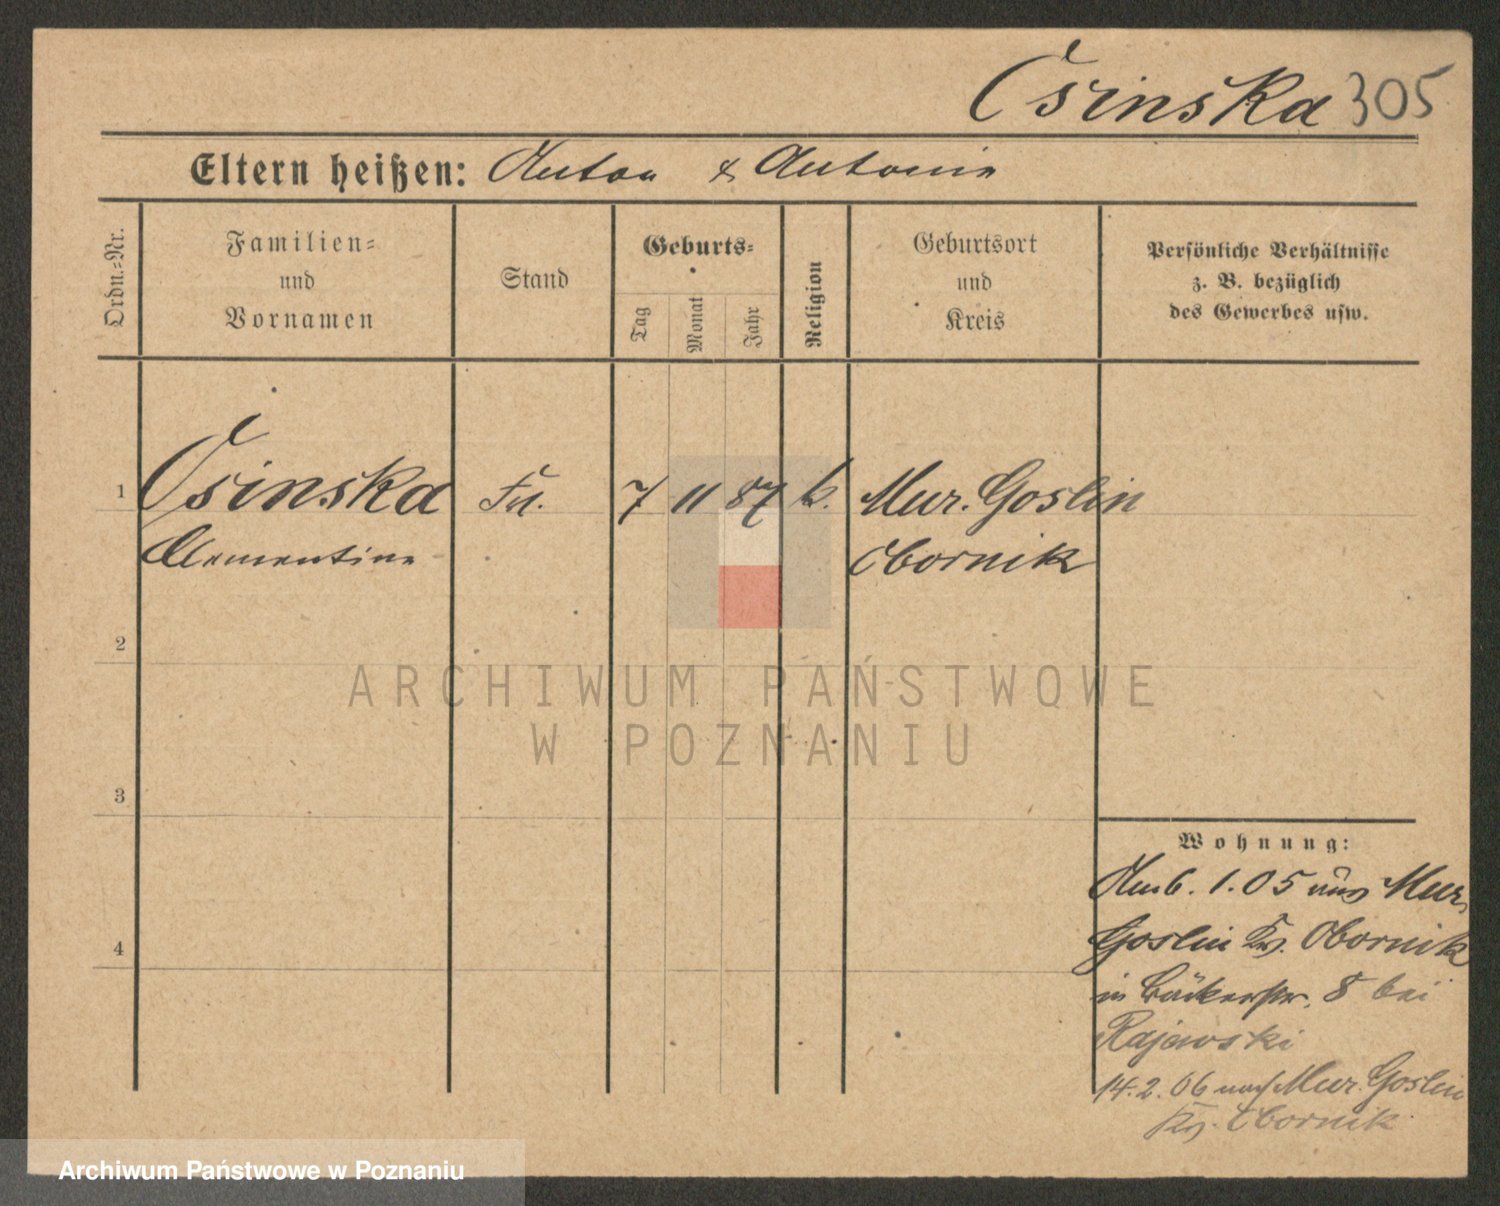 Osinska 305
Eltern heißen: Anton & Antonie
Ordn.-Nr.
Familien-
und
Vornamen
Stand
Geburts-
Tag
Monat
Jahr
Religion
Geburtsort
und
Kreis
Persönliche Verhältnisse
z. B. bezüglich
des Gewerbes usw.
1 Osinska 7 11 87 k. Mur. Goslin
Clementine Obornik
2
3
4
Wohnung:
1.05 aus Mur.
Goslin Kr. Obornik
in Bäckerstr. 8 bei
Rajewski
14.2.06 nach Mur. Goslin
Kr. Obornik
ARCHIWUM PAŃSTWOWE
W POZNANIU
Archiwum Państwowe w Poznaniu